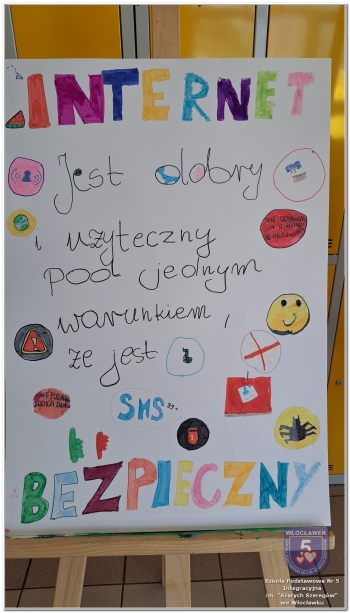 INTERNET
Jest dobry
i użyteczny
pod jednym
warunkiem,
że jest
SMS
BEZPIECZNY
WŁOCŁAWEK
5
Szkoła Podstawowa Nr 5
Integracyjna
im. "Szarych Szeregów"
we Włocławku